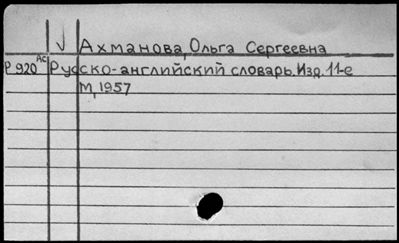 √ Ахманова, Ольга Сергеевна
Р 920 Ас Русско-английский словарь. Изд. 11-е
М, 1957